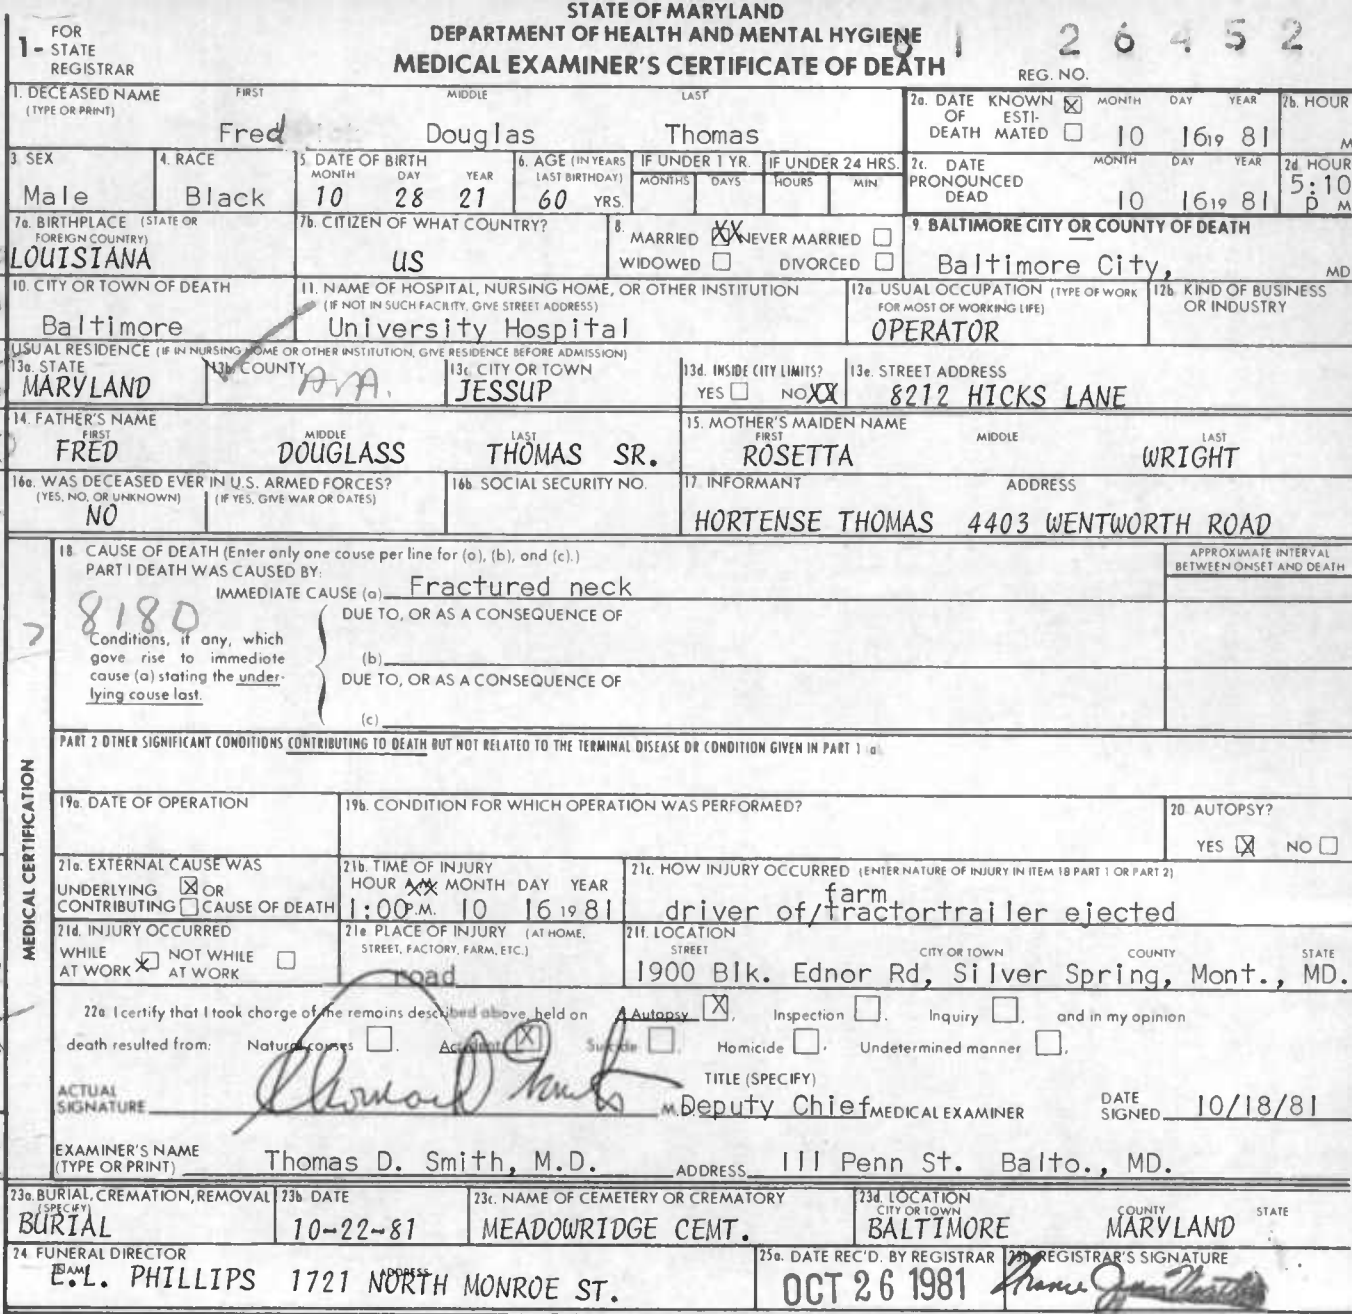 STATE OF MARYLAND
DEPARTMENT OF HEALTH AND MENTAL HYGIENE
MEDICAL EXAMINER'S CERTIFICATE OF DEATH
1- FOR STATE REGISTRAR
REG. NO. 81 26452
1. DECEASED NAME (TYPE OR PRINT) FIRST MIDDLE LAST
Fred Douglas Thomas
2a. DATE OF DEATH KNOWN X ESTIMATED MONTH DAY YEAR
10 16 19 81
2b. HOUR M
3. SEX
Male
4. RACE
Black
5. DATE OF BIRTH MONTH DAY YEAR
10 28 21
6. AGE (IN YEARS LAST BIRTHDAY)
60 YRS.
IF UNDER 1 YR. MONTHS DAYS
IF UNDER 24 HRS. HOURS MIN.
2c. DATE PRONOUNCED DEAD MONTH DAY YEAR
10 16 19 81
2d HOUR
5:10 P M
7a. BIRTHPLACE (STATE OR FOREIGN COUNTRY)
LOUISIANA
7b. CITIZEN OF WHAT COUNTRY?
US
8. MARRIED XX NEVER MARRIED
WIDOWED DIVORCED
9. BALTIMORE CITY OR COUNTY OF DEATH
Baltimore City, MD
10. CITY OR TOWN OF DEATH
Baltimore
11. NAME OF HOSPITAL, NURSING HOME, OR OTHER INSTITUTION
(IF NOT IN SUCH FACILITY, GIVE STREET ADDRESS)
University Hospital
12a. USUAL OCCUPATION (TYPE OF WORK FOR MOST OF WORKING LIFE)
OPERATOR
12b. KIND OF BUSINESS OR INDUSTRY
USUAL RESIDENCE (IF IN NURSING HOME OR OTHER INSTITUTION, GIVE RESIDENCE BEFORE ADMISSION)
13a. STATE
MARYLAND
13b. COUNTY
A.A.
13c. CITY OR TOWN
JESSUP
13d. INSIDE CITY LIMITS?
YES NO XX
13e. STREET ADDRESS
8212 HICKS LANE
14. FATHER'S NAME FIRST MIDDLE LAST
FRED DOUGLASS THOMAS SR.
15. MOTHER'S MAIDEN NAME FIRST MIDDLE LAST
ROSETTA WRIGHT
16a. WAS DECEASED EVER IN U.S. ARMED FORCES?
(YES, NO, OR UNKNOWN) (IF YES, GIVE WAR OR DATES)
NO
16b. SOCIAL SECURITY NO.
17. INFORMANT ADDRESS
HORTENSE THOMAS 4403 WENTWORTH ROAD
MEDICAL CERTIFICATION
18. CAUSE OF DEATH (Enter only one cause per line for (a), (b), and (c).)
PART I DEATH WAS CAUSED BY:
IMMEDIATE CAUSE (a) Fractured neck
APPROXIMATE INTERVAL BETWEEN ONSET AND DEATH
8180
Conditions, if any, which gave rise to immediate cause (a) stating the underlying cause last.
DUE TO, OR AS A CONSEQUENCE OF
(b)
DUE TO, OR AS A CONSEQUENCE OF
(c)
PART 2 OTHER SIGNIFICANT CONDITIONS CONTRIBUTING TO DEATH BUT NOT RELATED TO THE TERMINAL DISEASE OR CONDITION GIVEN IN PART 1 (a)
19a. DATE OF OPERATION
19b. CONDITION FOR WHICH OPERATION WAS PERFORMED?
20. AUTOPSY?
YES X NO
21a. EXTERNAL CAUSE WAS
UNDERLYING X OR
CONTRIBUTING CAUSE OF DEATH
21b. TIME OF INJURY
HOUR A.M. MONTH DAY YEAR
1:00 P.M. 10 16 19 81
21c. HOW INJURY OCCURRED (ENTER NATURE OF INJURY IN ITEM 18 PART 1 OR PART 2)
farm
driver of/tractortrailer ejected
21d. INJURY OCCURRED
WHILE AT WORK X NOT WHILE AT WORK
21e PLACE OF INJURY (AT HOME, STREET, FACTORY, FARM, ETC.)
road
21f. LOCATION STREET CITY OR TOWN COUNTY STATE
1900 Blk. Ednor Rd, Silver Spring, Mont., MD.
22a I certify that I took charge of the remains described above, held on Autopsy X, Inspection, Inquiry, and in my opinion
death resulted from: Natural causes, Accident X, Suicide, Homicide, Undetermined manner.
ACTUAL SIGNATURE Thomas D Smith M.
TITLE (SPECIFY)
Deputy Chief MEDICAL EXAMINER
DATE SIGNED 10/18/81
EXAMINER'S NAME (TYPE OR PRINT) Thomas D. Smith, M.D. ADDRESS 111 Penn St. Balto., MD.
23a. BURIAL, CREMATION, REMOVAL (SPECIFY)
BURIAL
23b. DATE
10-22-81
23c. NAME OF CEMETERY OR CREMATORY
MEADOWRIDGE CEMT.
23d. LOCATION CITY OR TOWN COUNTY STATE
BALTIMORE MARYLAND
24 FUNERAL DIRECTOR NAME ADDRESS
E.L. PHILLIPS 1721 NORTH MONROE ST.
25a. DATE REC'D. BY REGISTRAR
OCT 26 1981
25b. REGISTRAR'S SIGNATURE